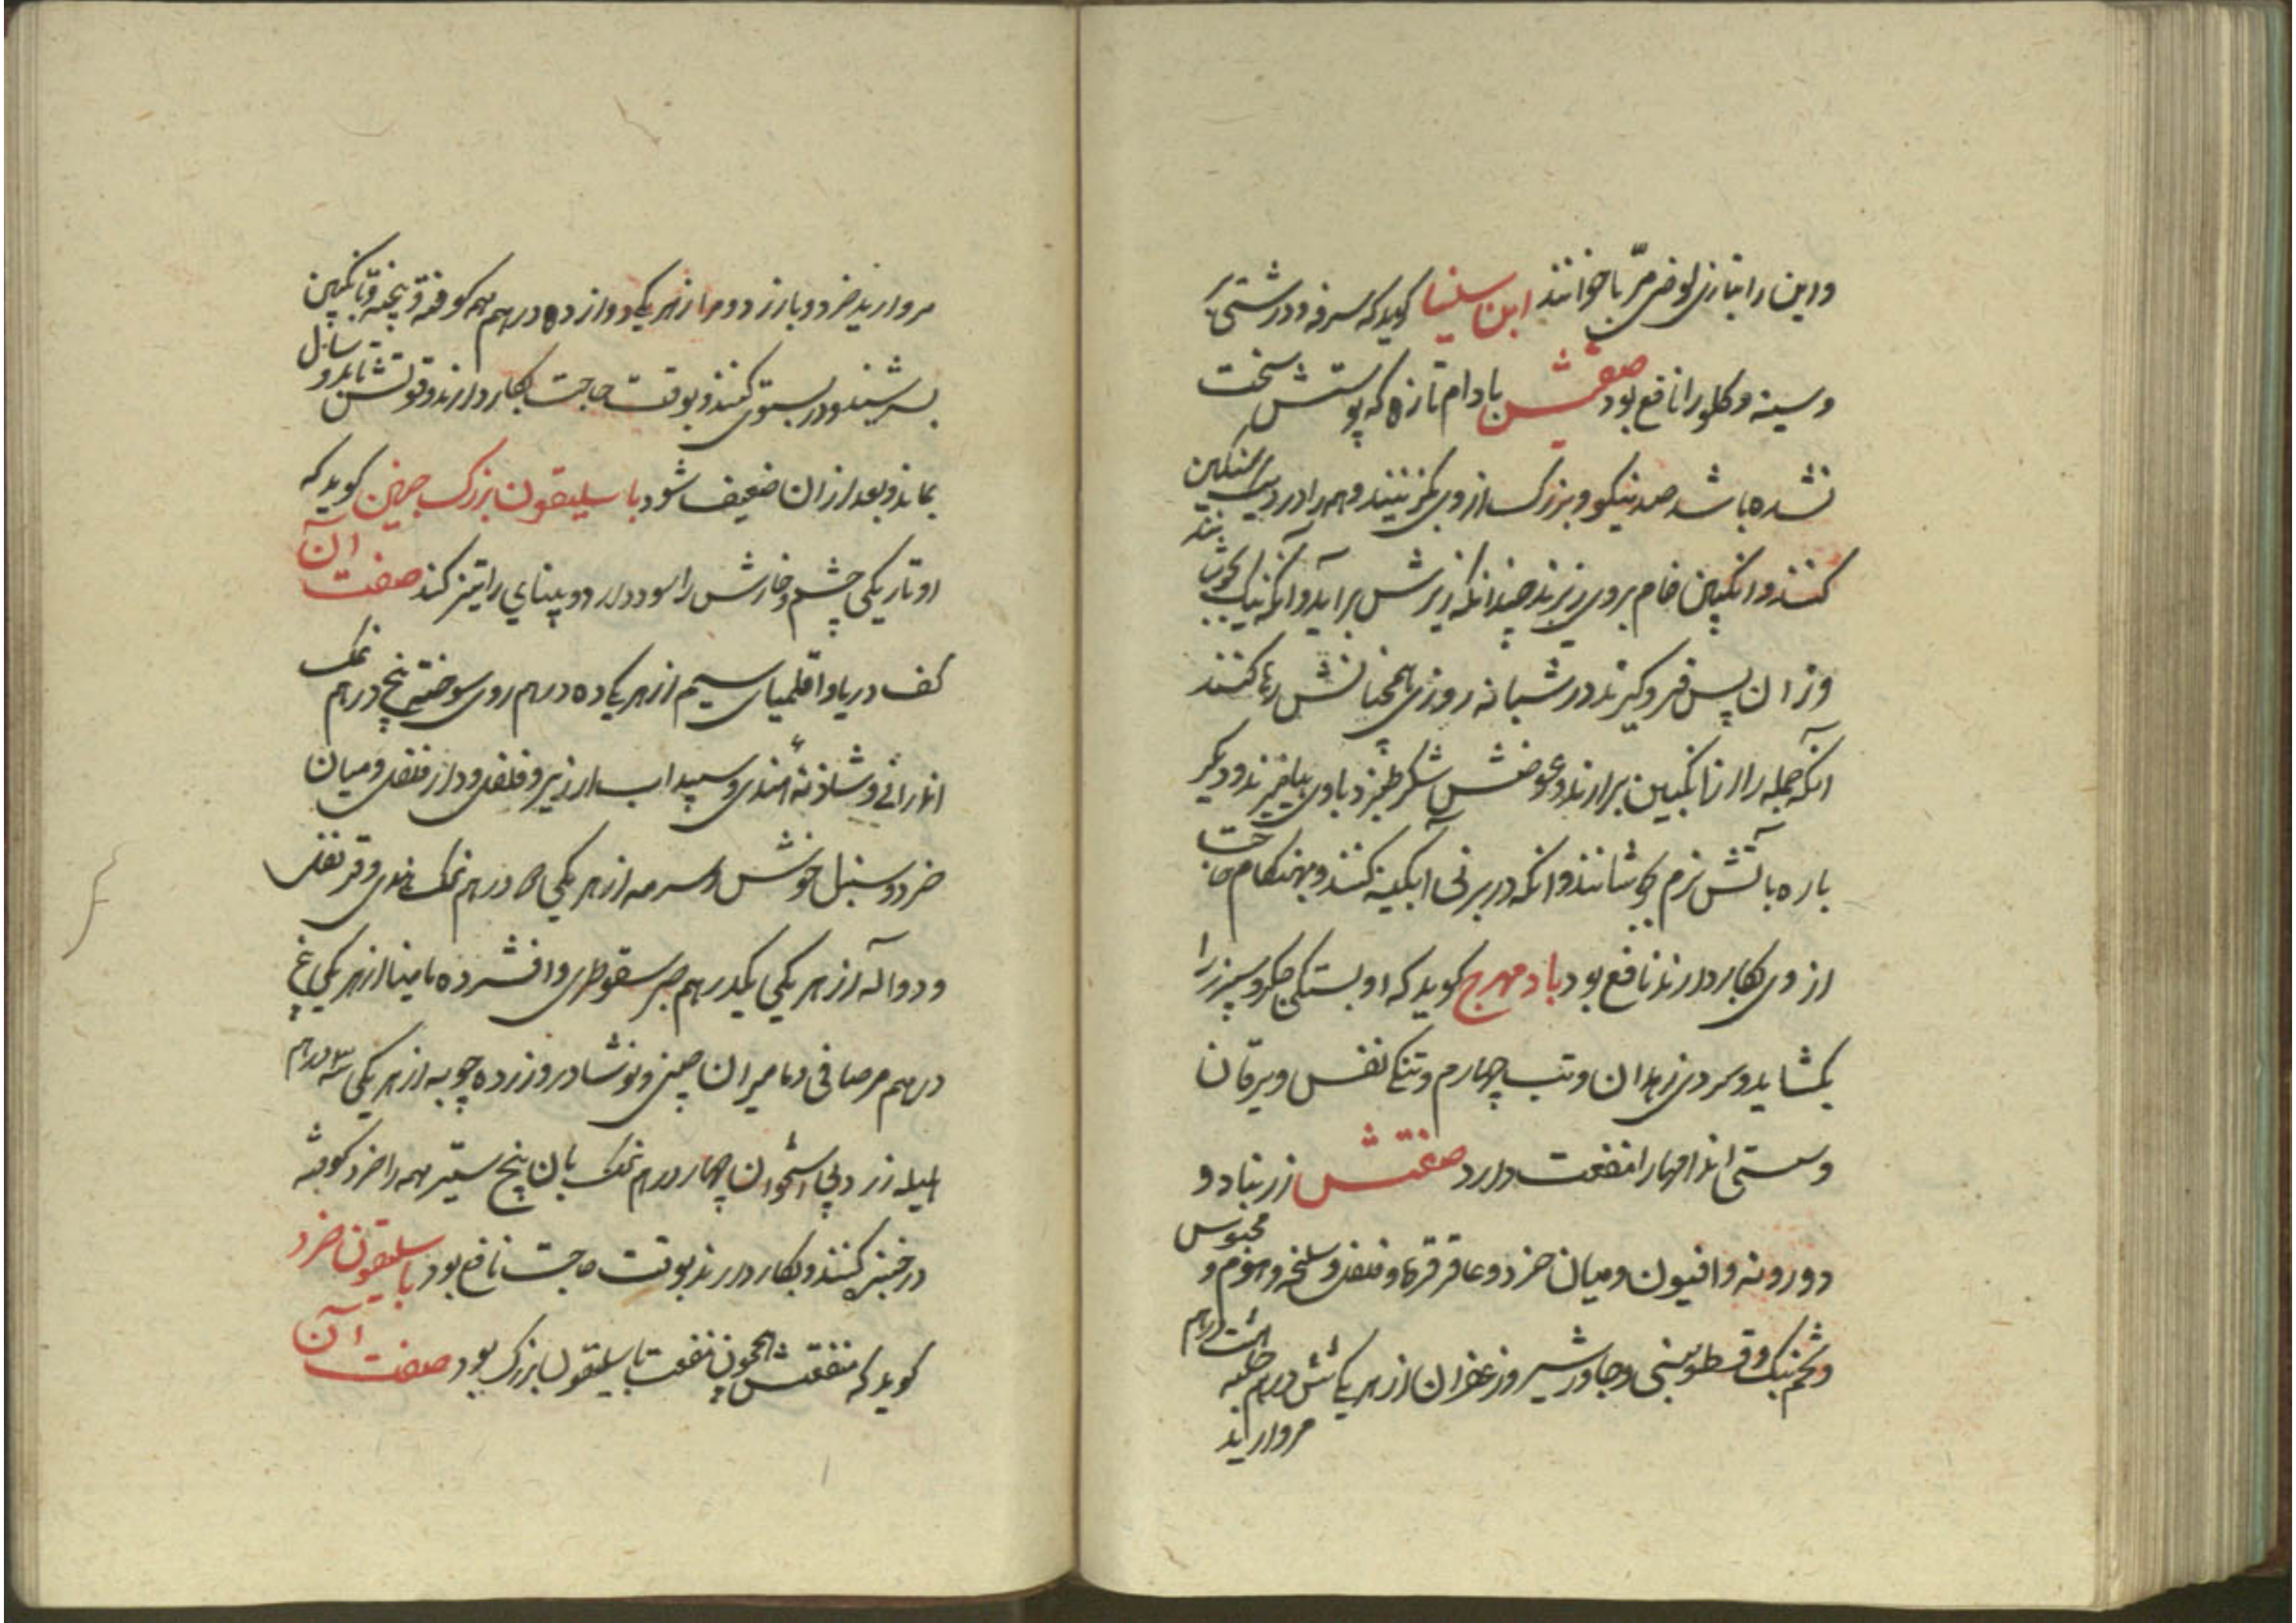 واین را بتازی لوض مرّبا خوانند ابن سینا کوید که سرفه و درشتی
وسینه وکلو را نافع بود صفتش بادام تازه که پوستش سخت
نشده باشد صد نیکو و بزرک از وی بکزینند وهمه را در دیک سنکین
کنند وانکبین خام بروی ریزند چندانکه زبرش برآید وآنکه نیک بجوشانند
وزان پس فروکیرند و در شبانه روزی همچنانش رها کنند
آنکه جمله را از انکبین برارند وعوضش شکر طبرزد باوی بیامیزند ودیکر
باره بآتش نرم بجوشانند وانکه در برنی آبکینه کنند وبهنکام حاجت
از وی بکار دارند نافع بود بادمهرج کوید که او بستکی جکر وسپرز را
بکشاید وسردی زهدان وتب چهارم وتنکی نفس ویرقان
وسستی اندامها را منفعت دارد صفتش زرنباد و
دورونه وافیون ومیان خرد وعاقرقرحا وفلفل وسلیخه وهوم و
وتخم بنک وقسط وبنی وجاوشیر وزعفران از هر یکی شش درم حلبه هشت درهم
مروارید
مروارید خرد وبارزد ومر از هر یکی دوازده درهم همه کوفته وبیخته وبانکبین
بسرشند ودر بستوی کنند وبوقت حاجت بکار دارند وقوتش تا بدو سال
بماند وبعد از ان ضعیف شود باسلیقون بزرک جنین کوید که
او تاریکی چشم وخارش را سود دارد وبینای را تیز کند صفت آن
کف دریا واقلمیای سیم از هر یکی ده درهم روی سوخته پنج درهم نمک
اندرانی وشاذنه هندی وسپیداب ارزیز وفلفل ودار فلفل ومیان
خرد وسنبل خوش وسرمه از هر یکی درهم نمک هندی وقرنفل
ودواله از هر یکی یکدرهم صبر سقوطری وافشرده مامیثا از هر یکی پنج
درهم مرصافی ومامیران چینی ونوشادر وزرده چوبه از هر یکی سه درهم
هلیله زرد بی استخوان چهار درهم نمک بان پنج ستیر همه را خرد کوفته
در خنبره کنند وبکار دارند بوقت حاجت نافع بود باسلیقون خرد
کوید که منفعتش همچون منفعت باسلیقون بزرک بود صفت آن